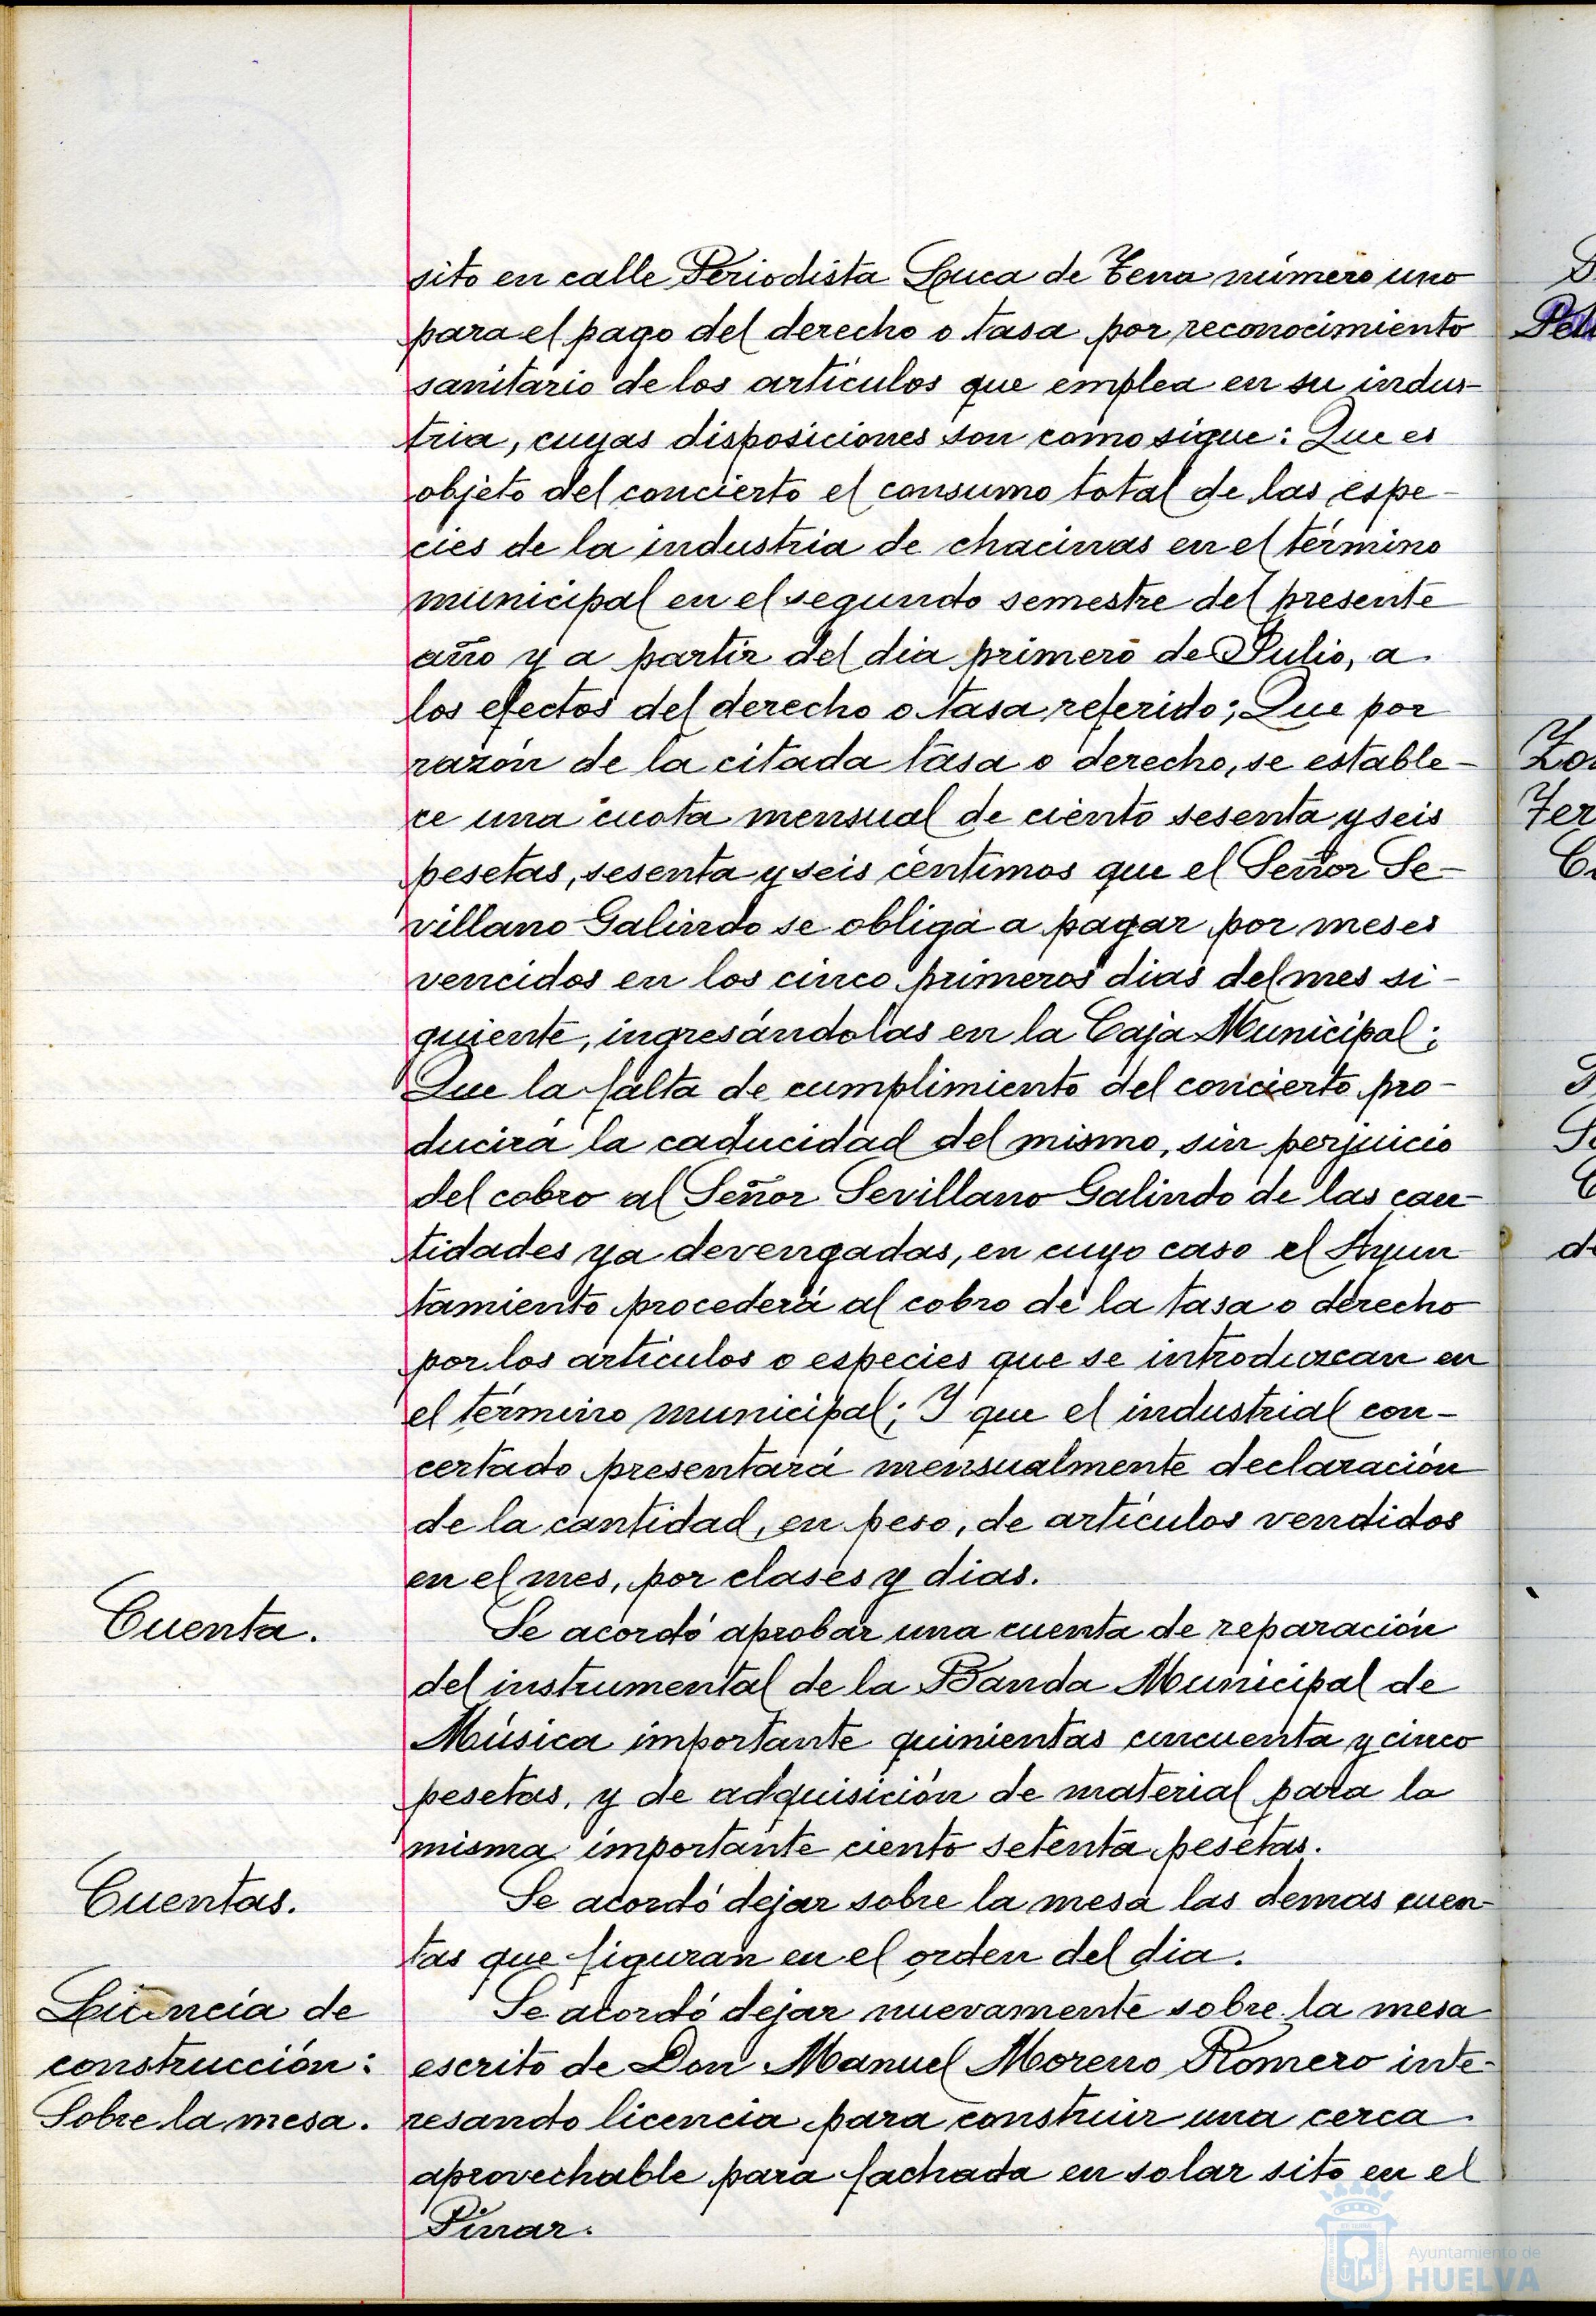 sito en calle Periodista Luca de Tena número uno
para el pago del derecho o tasa por reconocimiento
sanitario de los artículos que emplea en su indus-
tria, cuyas disposiciones son como sigue: Que es
objeto del concierto el consumo total de las espe-
cies de la industria de chacinas en el término
municipal en el segundo semestre del presente
año y a partir del dia primero de Julio, a
los efectos del derecho o tasa referido; Que por
razón de la citada tasa o derecho, se estable-
ce una cuota mensual de ciento sesenta y seis
pesetas, sesenta y seis centimos que el Señor Se-
villano Galindo se obliga a pagar por meses
vencidos en los cinco primeros dias del mes si-
guiente, ingresándolas en la Caja Municipal;
Que la falta de cumplimiento del concierto pro-
ducirá la caducidad del mismo, sin perjuicio
del cobro al Señor Sevillano Galindo de las can-
tidades ya devengadas, en cuyo caso el Ayun
tamiento procederá al cobro de la tasa o derecho
por los artículos o especies que se introduzcan en
el término municipal; Y que el industrial con-
certado presentará mensualmente declaración
de la cantidad, en peso, de artículos vendidos
en el mes, por clases y dias.
Cuenta.
Se acordó aprobar una cuenta de reparación
del instrumental de la Banda Municipal de
Música importante quinientas cincuenta y cinco
pesetas, y de adquisición de material para la
misma importante ciento setenta pesetas.
Cuentas.
Se acordó dejar sobre la mesa las demas cuen-
tas que figuran en el orden del dia.
Licencia de
construcción:
Sobre la mesa.
Se acordó dejar nuevamente sobre la mesa
escrito de Don Manuel Moreno Romero inte-
resando licencia para construir una cerca
aprovechable para fachada en solar sito en el
Pinar.
Ayuntamiento de
HUELVA